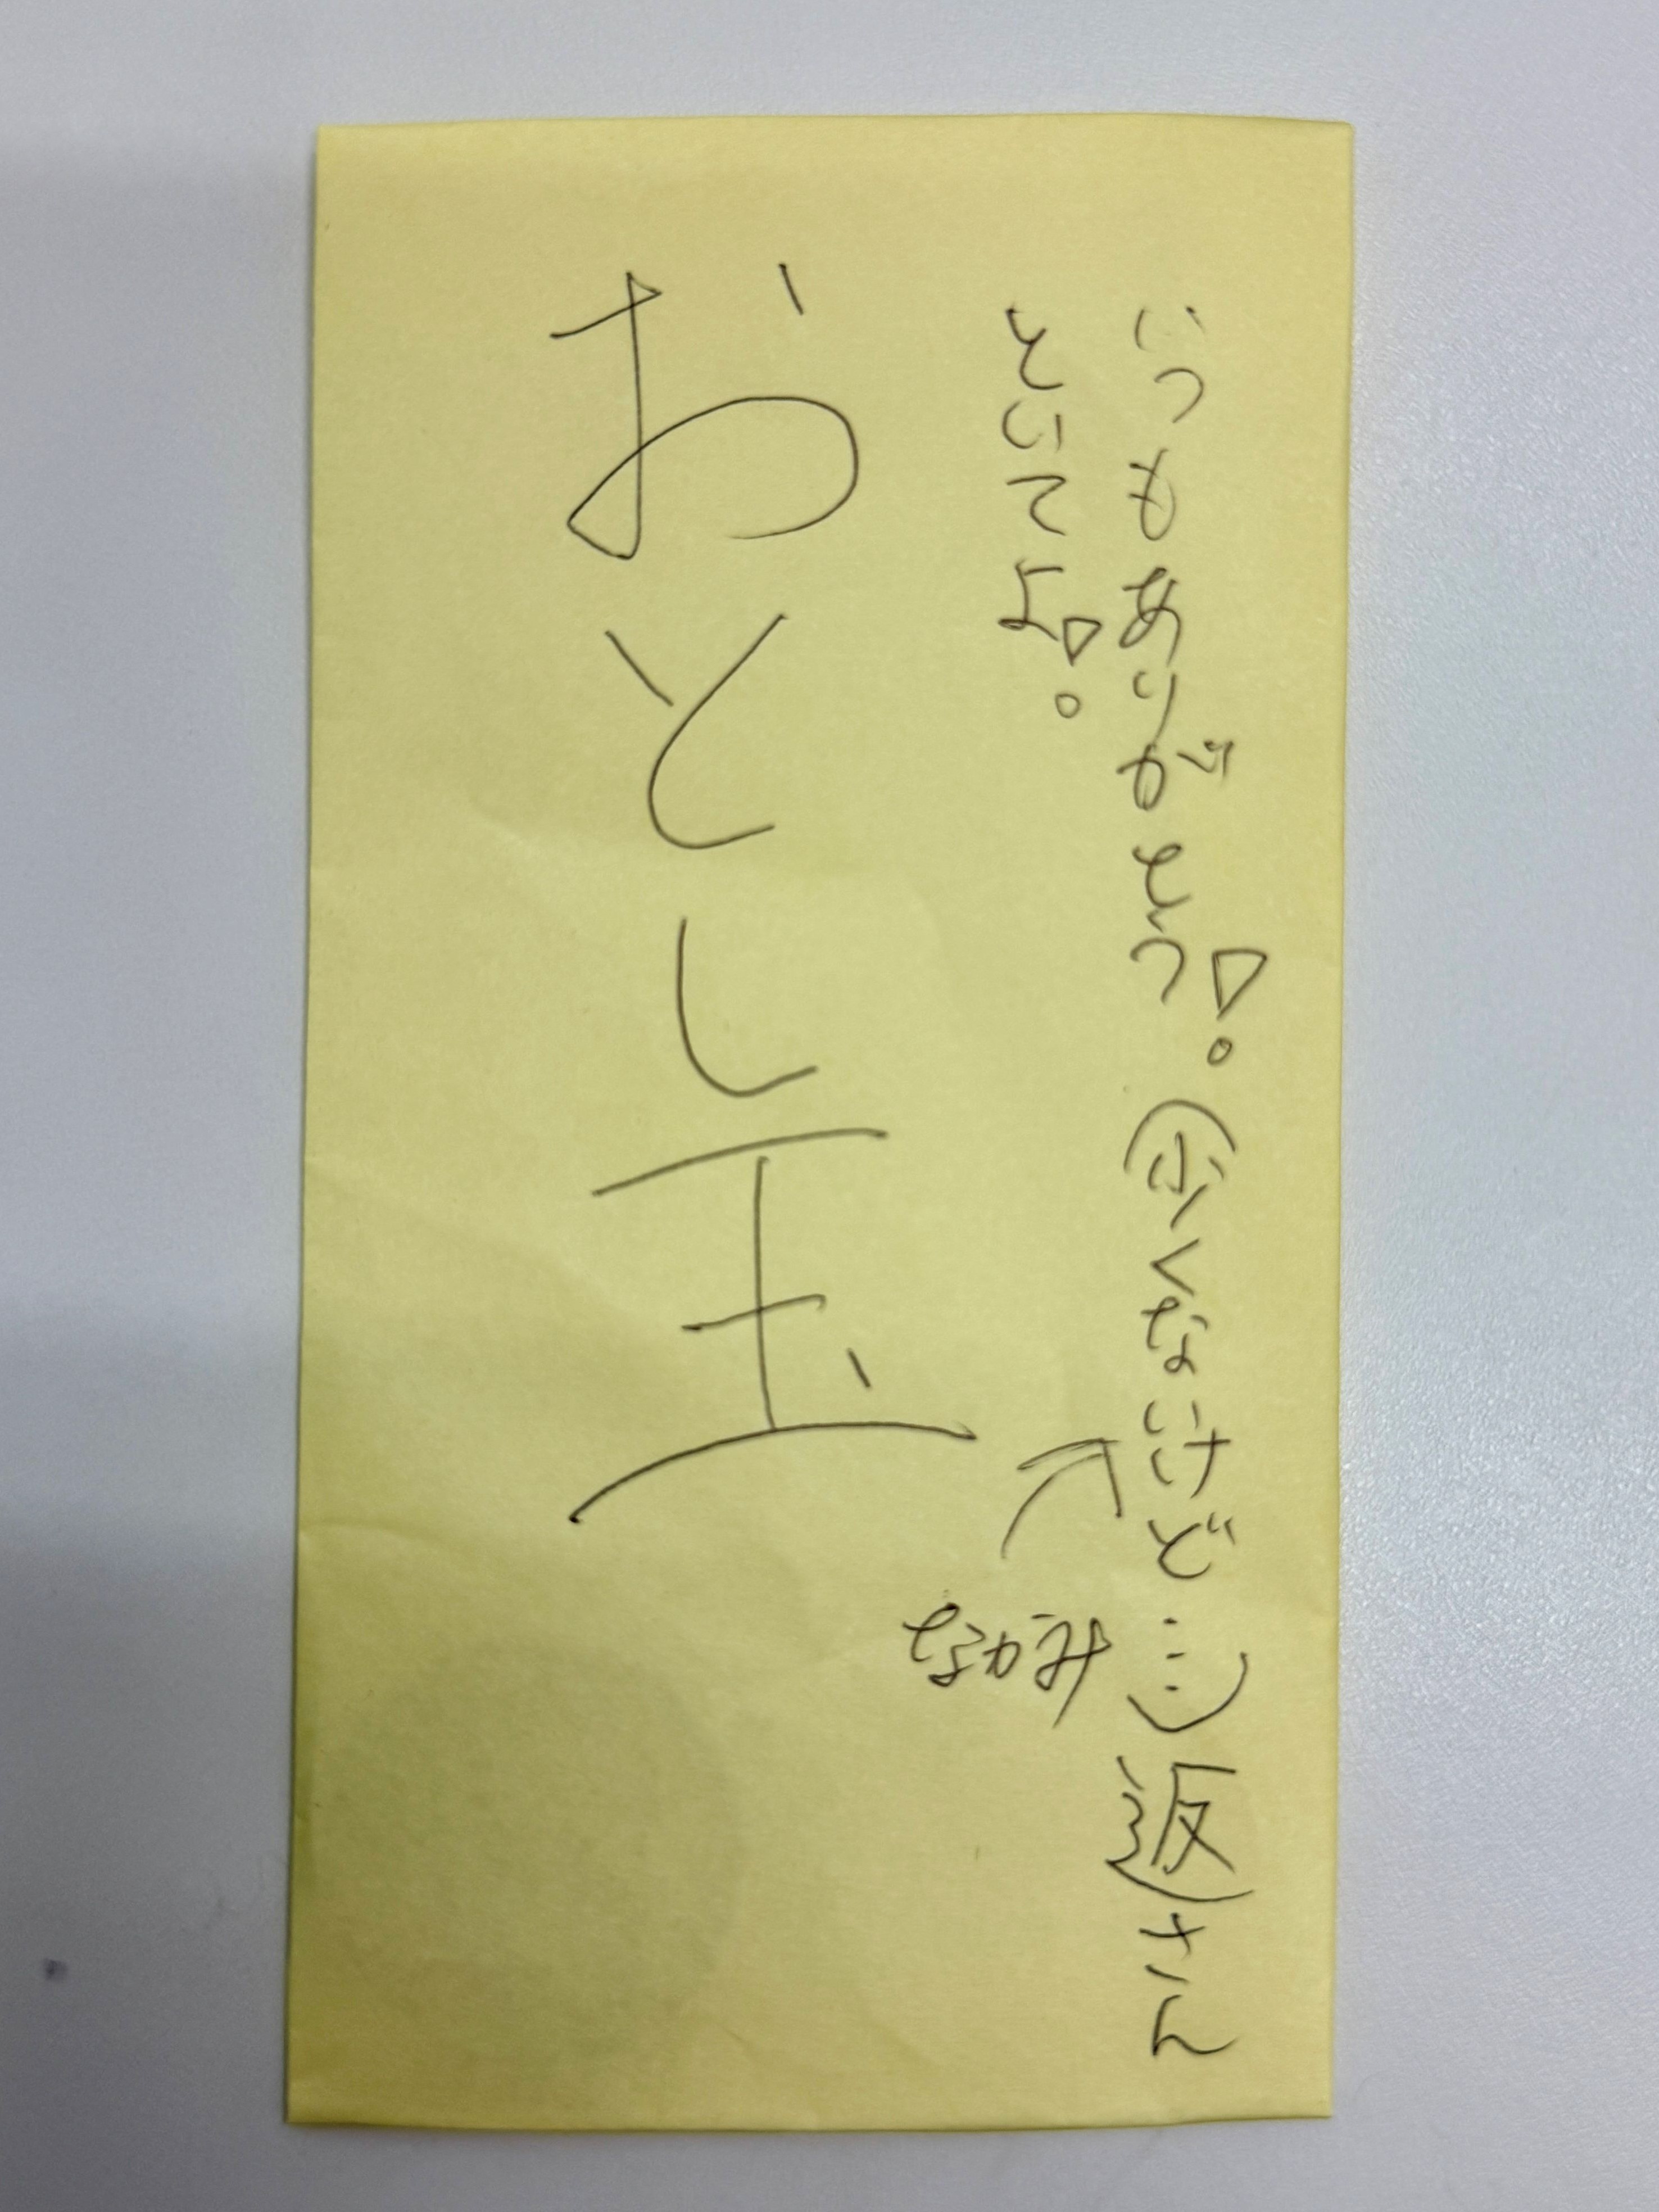 いつもありがとう!(少くないけど…)返さん
といてよ!
おとし玉
なかみ